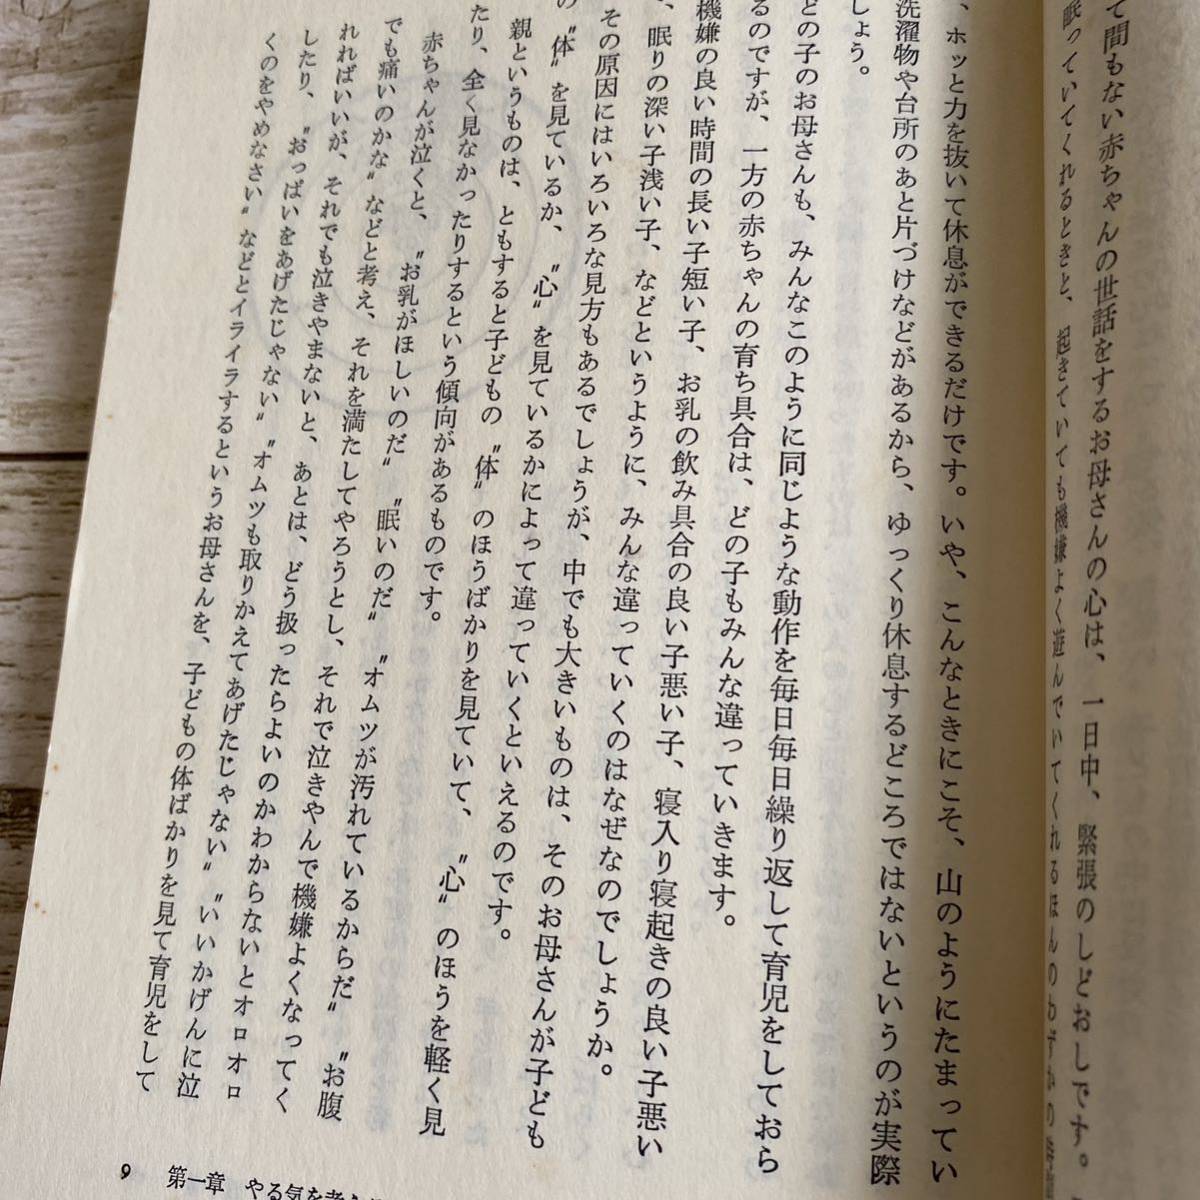 て間もない赤ちゃんの世話をするお母さんの心は、一日中、緊張のしどおしです。
眠っていてくれるときと、起きていても機嫌よく遊んでいてくれるほんのわずかの時
、ホッと力を抜いて休息ができるだけです。いや、こんなときにこそ、山のようにたまってい
洗濯物や台所のあと片づけなどがあるから、ゆっくり休息するどころではないというのが実際
しょう。
どの子のお母さんも、みんなこのように同じような動作を毎日毎日繰り返して育児をしておら
るのですが、一方の赤ちゃんの育ち具合は、どの子もみんな違っていきます。
機嫌の良い時間の長い子短い子、お乳の飲み具合の良い子悪い子、寝入り寝起きの良い子悪い
、眠りの深い子浅い子、などというように、みんな違っていくのはなぜなのでしょうか。
その原因にはいろいろな見方もあるでしょうが、中でも大きいものは、そのお母さんが子ども
の〝体〟を見ているか、〝心〟を見ているかによって違っていくといえるのです。
親というものは、ともすると子どもの〝体〟のほうばかりを見ていて、〝心〟のほうを軽く見
たり、全く見なかったりするという傾向があるものです。
赤ちゃんが泣くと、〝お乳がほしいのだ〟〝眠いのだ〟〝オムツが汚れているからだ〟〝お腹
でも痛いのかな〟などと考え、それを満たしてやろうとし、それで泣きやんで機嫌よくなってく
れればいいが、それでも泣きやまないと、あとは、どう扱ったらよいのかわからないとオロオロ
したり、〝おっぱいをあげたじゃない〟〝オムツも取りかえてあげたじゃない〟〝いいかげんに泣
くのをやめなさい〟などとイライラするというお母さんを、子どもの体ばかりを見て育児をして
9 第一章 やる気を